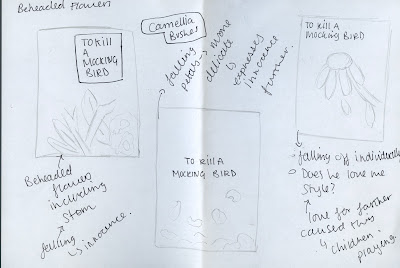 Beheaded Flowers
TO KILL
A
MOCKING
BIRD
Beheaded
flowers
including
stem
falling
↳ innocence.
Camellia
Bushes
falling
petals → more
delicate
is
expresses
innocence
further.
TO KILL A
MOCKING BIRD
TO KILL A
MOCKING BIRD
falling off individually
Does he love me
Style?
love for farther
caused this
↳ children
playing